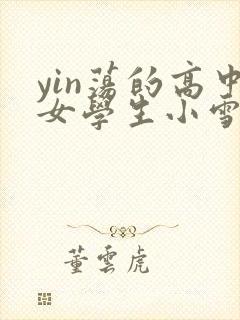 yin蕩的高中
女學生小雪
董雲虎